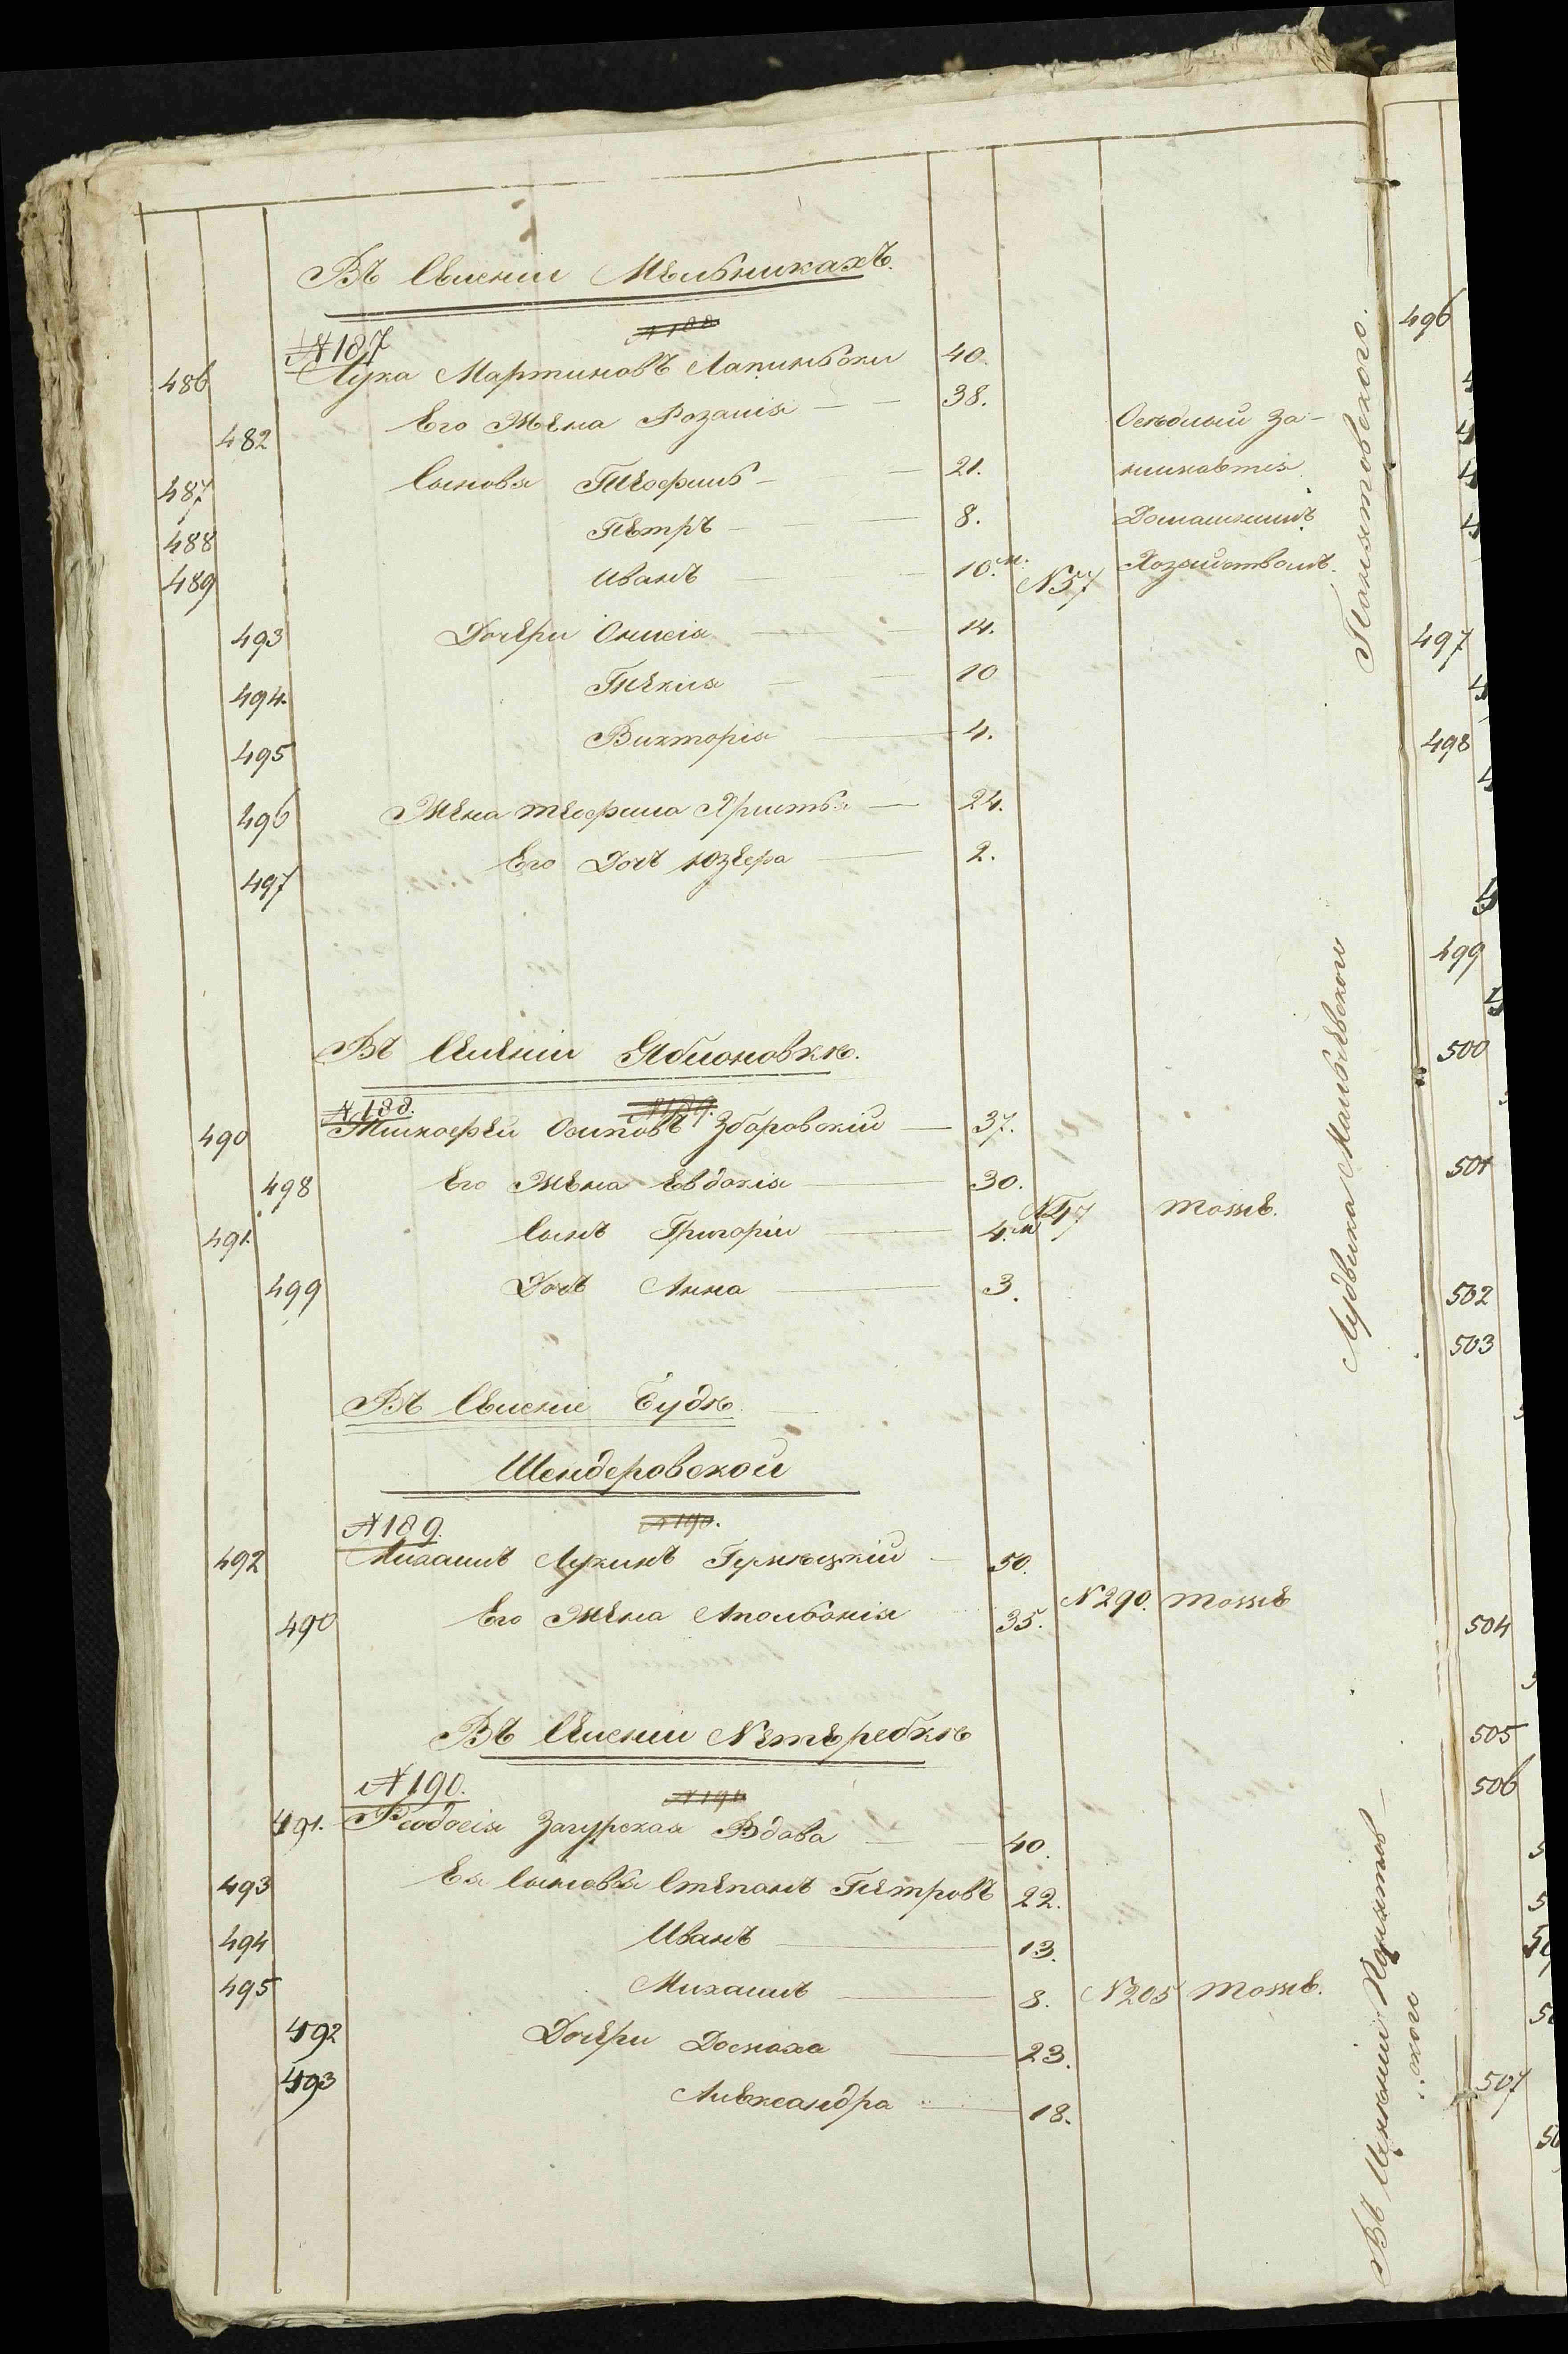 Въ Селеніи Мельникахъ.
№ 187 № 188
486 Лука Мартиновъ Лапинськи 40.
482 Его Жена Розалія 38. Осѣдлый за-
487 Сыновя Теофиль 21. нимается
488 Петръ 8. Домашнимъ
489 Иванъ 10.м. N57 Хозяйствомъ.
493 Дочери Онисія 14.
494. Текля 10
495 Викторія 4.
496 Жена теофила Христя 24.
497 Его Дочь Юзефа 2.
Въ Селеніи Яблоновкѣ.
№ 188. № 189.
490 Тимофей Осиповъ Зборовскій 37.
498 Его Жена Евдокія 30.
491. Сынъ Григоріи 4.м N47 тожѣ.
499 Дочь Анна 3.
Въ Селеніе Будѣ
Шендеровской
№ 189. № 190.
492 Михаилъ Лукинъ 50.
490 Его Жена Апольонія 35. N290. тожѣ
Въ Селеніи Нетеребкѣ
№ 190. № 191
491. Феодосія Загурская Вдова 40.
493 Ея Сыновья Степанъ Петровъ 22.
494 Иванъ 13.
495 Михаилъ 8. N205 тожѣ.
492 Дочери Домаха 23.
493 Александра 18.
Понятовского.
Лудвика Мальевскои
Въ Имѣнии Понятов-
ского
496
497
498
499
500
501
502
503
504
505
506
507